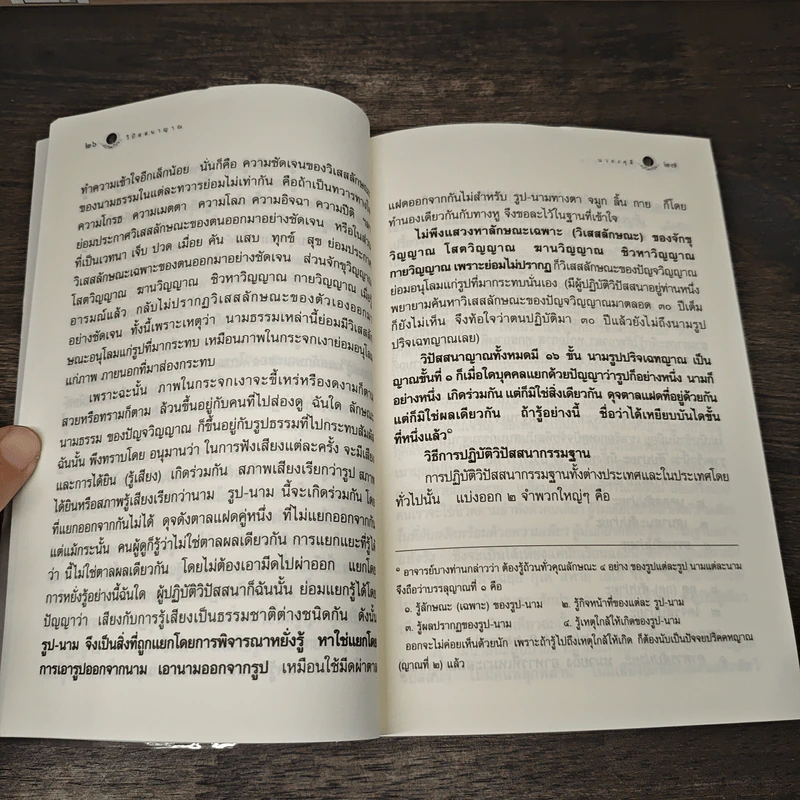 ๒๖ วิปัสสนาญาณ
ทำความเข้าใจอีกเล็กน้อย นั่นก็คือ ความชัดเจนของวิเสสลักษณะ
ของนามธรรมในแต่ละทวารย่อมไม่เท่ากัน คือถ้าเป็นทวารทางใจ
ความโกรธ ความเมตตา ความโลภ ความอิจฉา ความปีติ
ย่อมประกาศวิเสสลักษณะของตนออกมาอย่างชัดเจน หรือในส่วน
ที่เป็นเวทนา เจ็บ ปวด เมื่อย คัน แสบ ทุกข์ สุข ย่อมประกาศ
วิเสสลักษณะเฉพาะของตนออกมาอย่างชัดเจน ส่วนจักขุวิญญาณ
โสตวิญญาณ ฆานวิญญาณ ชิวหาวิญญาณ กายวิญญาณ
อารมณ์แล้ว กลับไม่ปรากฏวิเสสลักษณะของตัวเองออกมา
อย่างชัดเจน ทั้งนี้เพราะเหตุว่า นามธรรมเหล่านี้ย่อมมีวิเสสลัก
ษณะอนุโลมแก่รูปที่มากระทบ เหมือนภาพในกระจกเงาย่อมอนุโลม
แก่ภาพ ภายนอกที่มาส่องกระทบ
เพราะฉะนั้น ภาพในกระจกเงาจะขี้เหร่หรืองดงามก็ตาม
สวยหรือทรามก็ตาม ล้วนขึ้นอยู่กับคนที่ไปส่องดู ฉันใด ลักษณะ
นามธรรม ของปัจวิญญาณ ก็ขึ้นอยู่กับรูปธรรมที่ไปกระทบสัมผัส
ฉันนั้น พึงทราบโดย อนุมานว่า ในการฟังเสียงแต่ละครั้ง จะมีเสียง
และการได้ยิน (รู้เสียง) เกิดร่วมกัน สภาพเสียงเรียกว่ารูป สภาพ
ได้ยินหรือสภาพรู้เสียงเรียกว่านาม รูป-นาม นี้จะเกิดร่วมกัน โดย
ที่แยกออกจากกันไม่ได้ ดุจดังตาลแฝดคู่หนึ่ง ที่ไม่แยกออกจากกัน
แต่แม้กระนั้น คนผู้ดูก็รู้ว่าไม่ใช่ตาลผลเดียวกัน การแยกแยะที่รู้ได้
ว่า นี้ไม่ใช่ตาลผลเดียวกัน โดยไม่ต้องเอามีดไปผ่าออก แยกโดย
การหยั่งรู้อย่างนี้ฉันใด ผู้ปฏิบัติวิปัสสนาก็ฉันนั้น ย่อมแยกรู้ได้โดย
ปัญญาว่า เสียงกับการรู้เสียงเป็นธรรมชาติต่างชนิดกัน ดังนั้น
รูป-นาม จึงเป็นสิ่งที่ถูกแยกโดยการพิจารณาหยั่งรู้ หาใช่แยกโดย
การเอารูปออกจากนาม เอานามออกจากรูป เหมือนใช้มีดผ่าตาล
๒๗
แฝดออกจากกันไม่สำหรับ รูป-นามทางตา จมูก ลิ้น กาย ก็โดย
ทำนองเดียวกันกับทางหู จึงขอละไว้ในฐานที่เข้าใจ
ไม่พึงแสวงหาลักษณะเฉพาะ (วิเสสลักษณะ) ของจักขุ
วิญญาณ โสตวิญญาณ ฆานวิญญาณ ชิวหาวิญญาณ
กายวิญญาณ เพราะย่อมไม่ปรากฏ ก็วิเสสลักษณะของปัญจวิญญาณ
ย่อมอนุโลมแก่รูปที่มากระทบนั่นเอง (มีผู้ปฏิบัติวิปัสสนาอยู่ท่านหนึ่ง
พยายามค้นหาวิเสสลักษณะของปัญจวิญญาณมาตลอด ๓๐ ปีเต็ม
ก็ยังไม่เห็น จึงท้อใจว่าตนปฏิบัติมา ๓๐ ปีแล้วยังไม่ถึงนามรูป
ปริจเฉทญาณเลย)
วิปัสสนาญาณทั้งหมดมี ๑๖ ขั้น นามรูปปริจเฉทญาณ เป็น
ญาณขั้นที่ ๑ ก็เมื่อใดบุคคลแยกด้วยปัญญาว่ารูปก็อย่างหนึ่ง นามก็
อย่างหนึ่ง เกิดร่วมกัน แต่ก็มิใช่สิ่งเดียวกัน ดุจตาลแฝดที่อยู่ด้วยกัน
แต่ก็มิใช่ผลเดียวกัน ถ้ารู้อย่างนี้ ชื่อว่าได้เหยียบบันไดขั้น
ที่หนึ่งแล้ว๑
วิธีการปฏิบัติวิปัสสนากรรมฐาน
การปฏิบัติวิปัสสนากรรมฐานทั้งต่างประเทศและในประเทศโดย
ทั่วไปนั้น แบ่งออก ๒ จำพวกใหญ่ๆ คือ
๑ อาจารย์บางท่านกล่าวว่า ต้องรู้ถ้วนทั่วคุณลักษณะ ๔ อย่าง ของรูปแต่ละรูป นามแต่ละนาม
จึงถือว่าบรรลุญาณที่ ๑ คือ
๑. รู้ลักษณะ (เฉพาะ) ของรูป-นาม ๒. รู้กิจหน้าที่ของแต่ละ รูป-นาม
๓. รู้ผลปรากฏของรูป-นาม ๔. รู้เหตุใกล้ให้เกิดของรูป-นาม
ออกจะไม่ค่อยเห็นด้วยนัก เพราะถ้ารู้ไปถึงเหตุใกล้ให้เกิด ก็ต้องนับเป็นปัจจยปริคคหญาณ
(ญาณที่ ๒) แล้ว